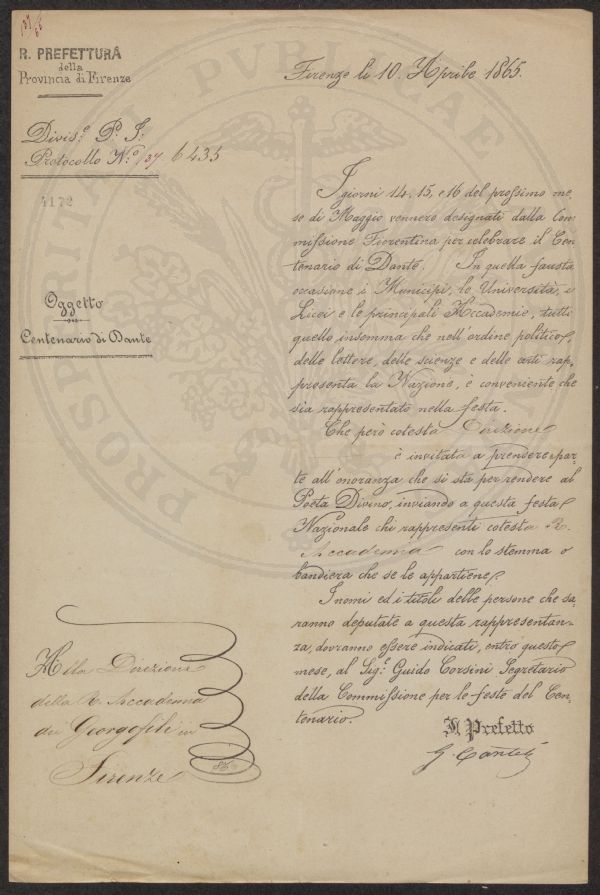 R. PREFETTURA
della
Provincia di Firenze
Firenze li 10. Aprile 1865.
Divis.e P. I.
Protocollo N.o 137 6435
4172
Oggetto
Centenario di Dante
I giorni 14. 15, e 16 del prossimo me-
se di Maggio vennero designati dalla Com
missione Fiorentina per celebrare il Cen-
tenario di Dante. In quella fausta
occasione i Municipi, le Università, i
Licei e le principali Accademie, tutti
quello insomma che nell'ordine politico,
delle lettere, delle scienze e delle arti rap-
presenta la Nazione, è conveniente che
sia rappresentato nella festa.
Che però cotesta Direzione
è invitata a prendere par-
te all'onoranza che si sta per rendere al
Poeta Divino, inviando a questa festa
Nazionale chi rappresenti cotesta R.
Accademia con lo stemma o
bandiera che se le appartiene.
I nomi ed i titoli delle persone che sa-
ranno deputate a questa rappresentan-
za, dovranno essere indicati, entro questo
mese, al Sig.e Guido Corsini Segretario
della Commissione per le feste del Cen-
tenario.
Il Prefetto
G. Cantelli
Alla Direzione
della R. Accademia
dei Georgofili in
Firenze
PROSPERITATI PVBLICAE